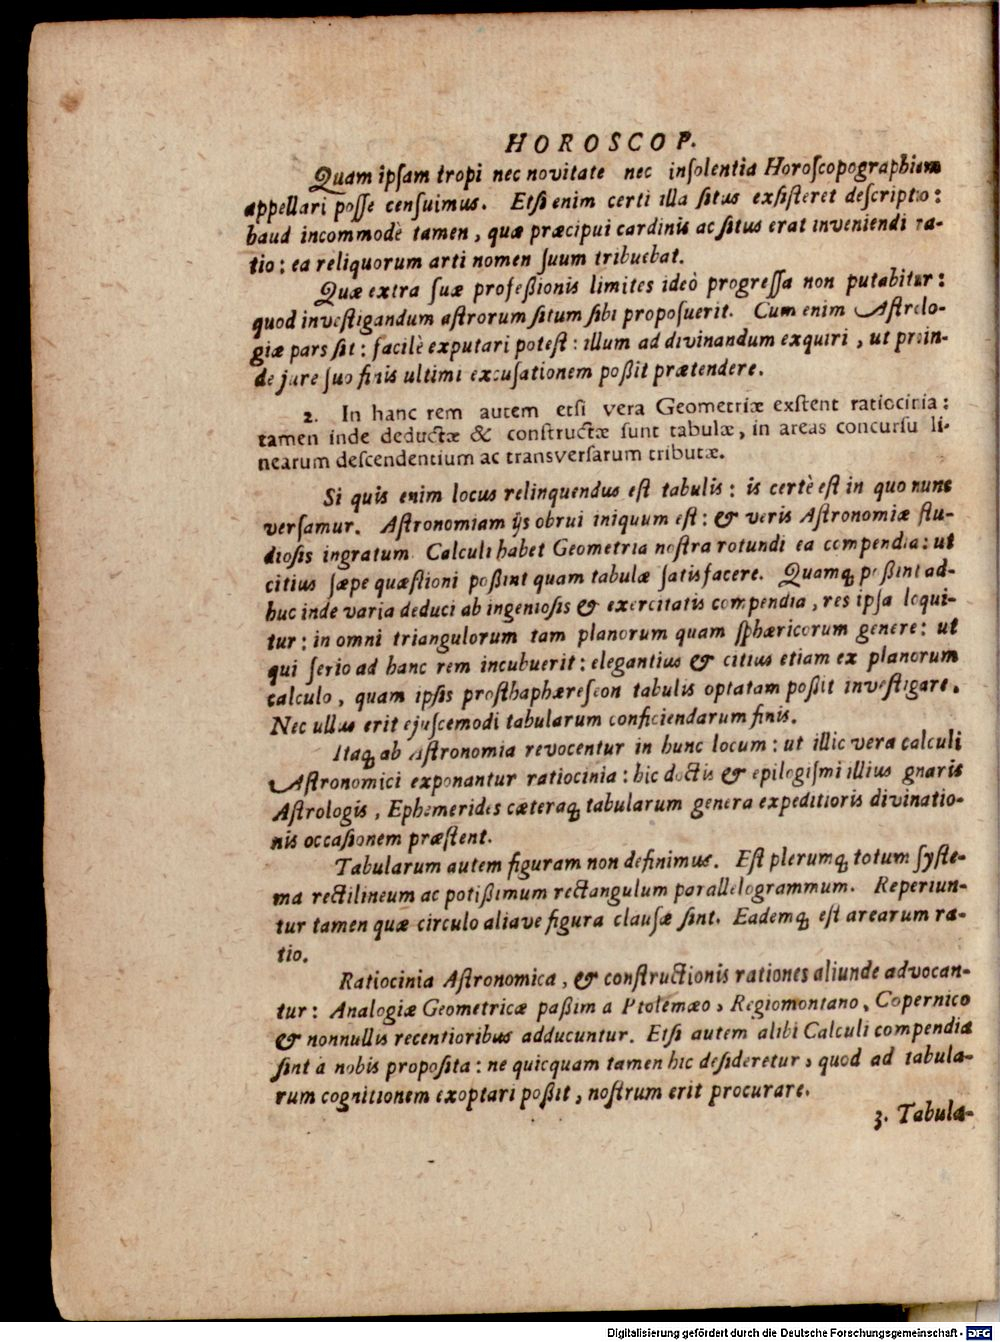 HOROSCOP.
Quam ipſam tropi nec novitate nec inſolentia Horoſcopographiam
appellari poſſe cenſuimus. Etſi enim certi illa ſitus exſiſteret deſcriptio:
haud incommodè tamen, quæ præcipui cardinis ac ſitus erat inveniendi ra-
tio: ea reliquorum arti nomen ſuum tribuebat.
Quæ extra ſuæ profeßionis limites ideò progreſſa non putabitur:
quod inveſtigandum aſtrorum ſitum ſibi propoſuerit. Cum enim Aſtrolo-
giæ pars ſit: facilè exputari poteſt: illum ad divinandum exquiri, ut proin-
de jure ſuo finis ultimi excuſationem poßit prætendere.
2. In hanc rem autem etſi vera Geometriæ exſtent ratiocinia:
tamen inde deductæ & conſtructæ ſunt tabulæ, in areas concurſu li-
nearum deſcendentium ac transverſarum tributæ.
Si quis enim locus relinquendus eſt tabulis: is certè eſt in quo nunc
verſamur. Aſtronomiam ijs obrui iniquum eſt: & veris Aſtronomiæ ſtu-
dioſis ingratum. Calculi habet Geometria noſtra rotundi ea compendia: ut
citius ſæpe quæſtioni poßint quam tabulæ ſatisfacere. Quamq́ poßint ad-
huc inde varia deduci ab ingenioſis & exercitatis compendia, res ipſa loqui-
tur: in omni triangulorum tam planorum quam ſphæricorum genere: ut
qui ſerio ad hanc rem incubuerit: elegantius & citius etiam ex planorum
calculo, quam ipſis proſthaphæreſeon tabulis optatam poßit inveſtigare.
Nec ullus erit ejuſcemodi tabularum conficiendarum finis.
Itaq́ ab Aſtronomia revocentur in hunc locum: ut illic vera calculi
Aſtronomici exponantur ratiocinia: hic doctis & epilogiſmi illius gnaris
Aſtrologis, Ephemerides cæteraq́ tabularum genera expeditioris divinatio-
nis occaſionem præſtent.
Tabularum autem figuram non definimus. Eſt plerumq́ totum ſyſte-
ma rectilineum ac potißimum rectangulum parallelogrammum. Reperiun-
tur tamen quæ circulo aliave figura clauſæ ſint. Eademq́ eſt arearum ra-
tio.
Ratiocinia Aſtronomica, & conſtructionis rationes aliunde advocan-
tur: Analogiæ Geometricæ paßim a Ptolemæo, Regiomontano, Copernico
& nonnullis recentioribus adducuntur. Etſi autem alibi Calculi compendia
ſint à nobis propoſita: ne quicquam tamen hic deſideretur, quod ad tabula-
rum cognitionem exoptari poßit, noſtrum erit procurare.
3. Tabula-
Digitalisierung gefördert durch die Deutsche Forschungsgemeinschaft - DFG